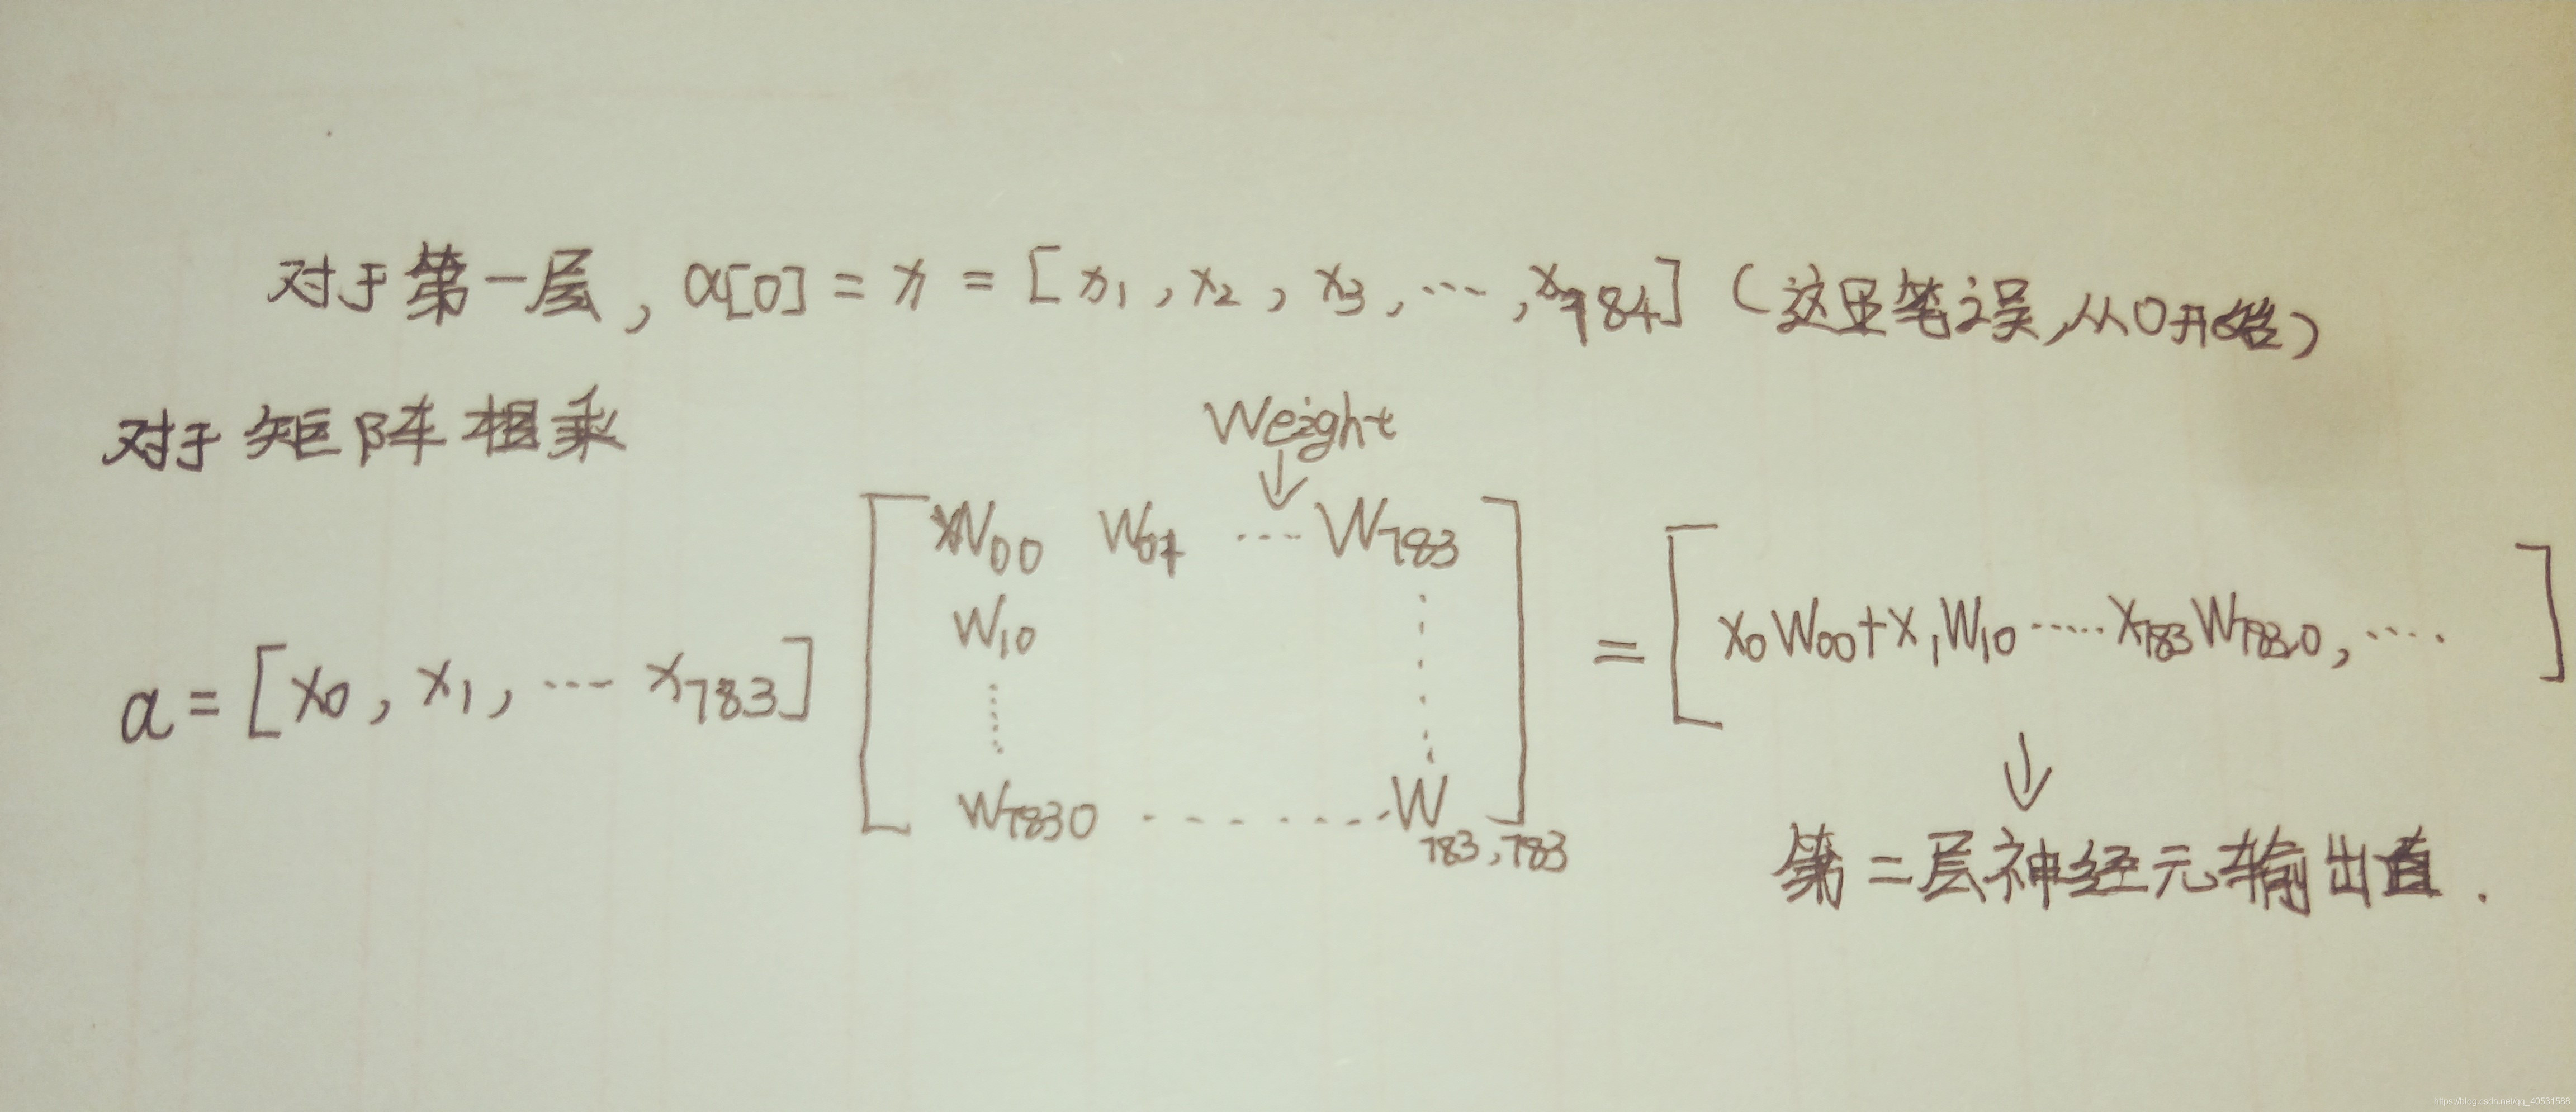 对于第一层，a[0] = x = [x1, x2, x3, ..., x784]（这里笔误，从0开始）
对于矩阵相乘
Weight
↓
a = [x0, x1, ... x783] [W00 W01 ... W783 = [x0W00+x1W10 ..... x783W783,0, .... ]
W10
W7830 ........ W783,783]
↓
第二层神经元输出值.
https://blog.csdn.net/qq_40531588